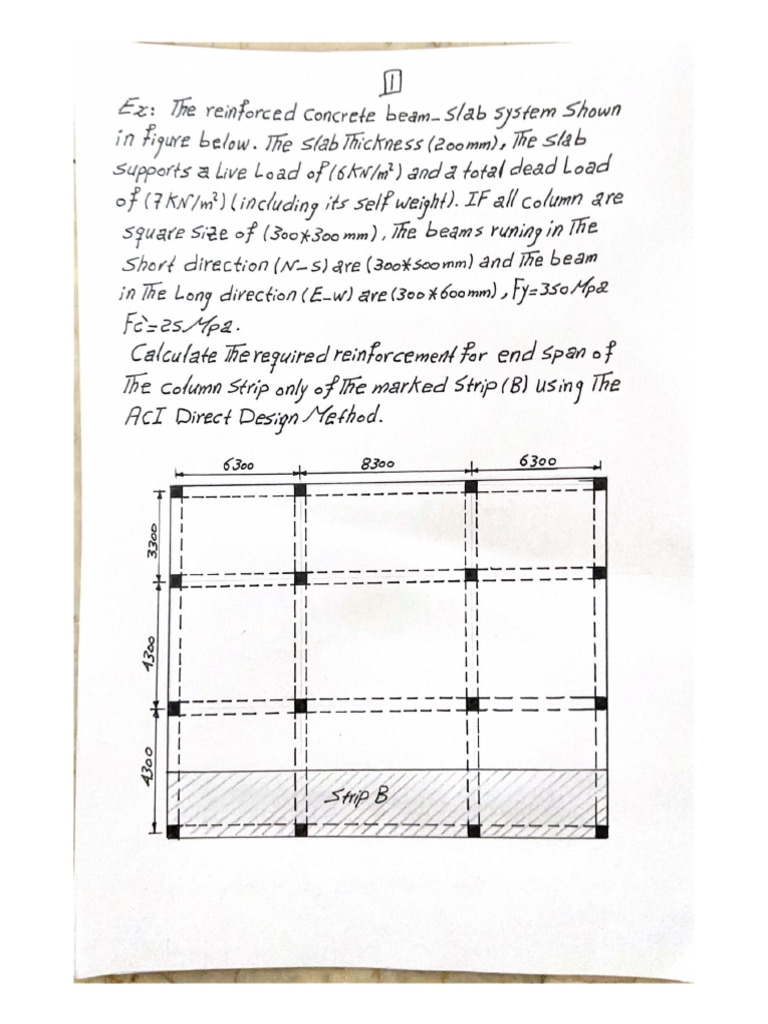 1
Ex: The reinforced concrete beam-slab system shown
in figure below. The slab Thickness (200mm), The slab
supports a Live Load of (6KN/m²) and a total dead Load
of (7KN/m²) (including its self weight). IF all column are
square size of (300*300mm), The beams runing in The
short direction (N-S) are (300*500mm) and The beam
in The Long direction (E-W) are (300*600mm), Fy=350Mpa
Fc'=25Mpa.
Calculate The required reinforcement for end span of
The column strip only of The marked Strip (B) using The
ACI Direct Design Method.
6300 8300 6300
3300
4300
4300
Strip B